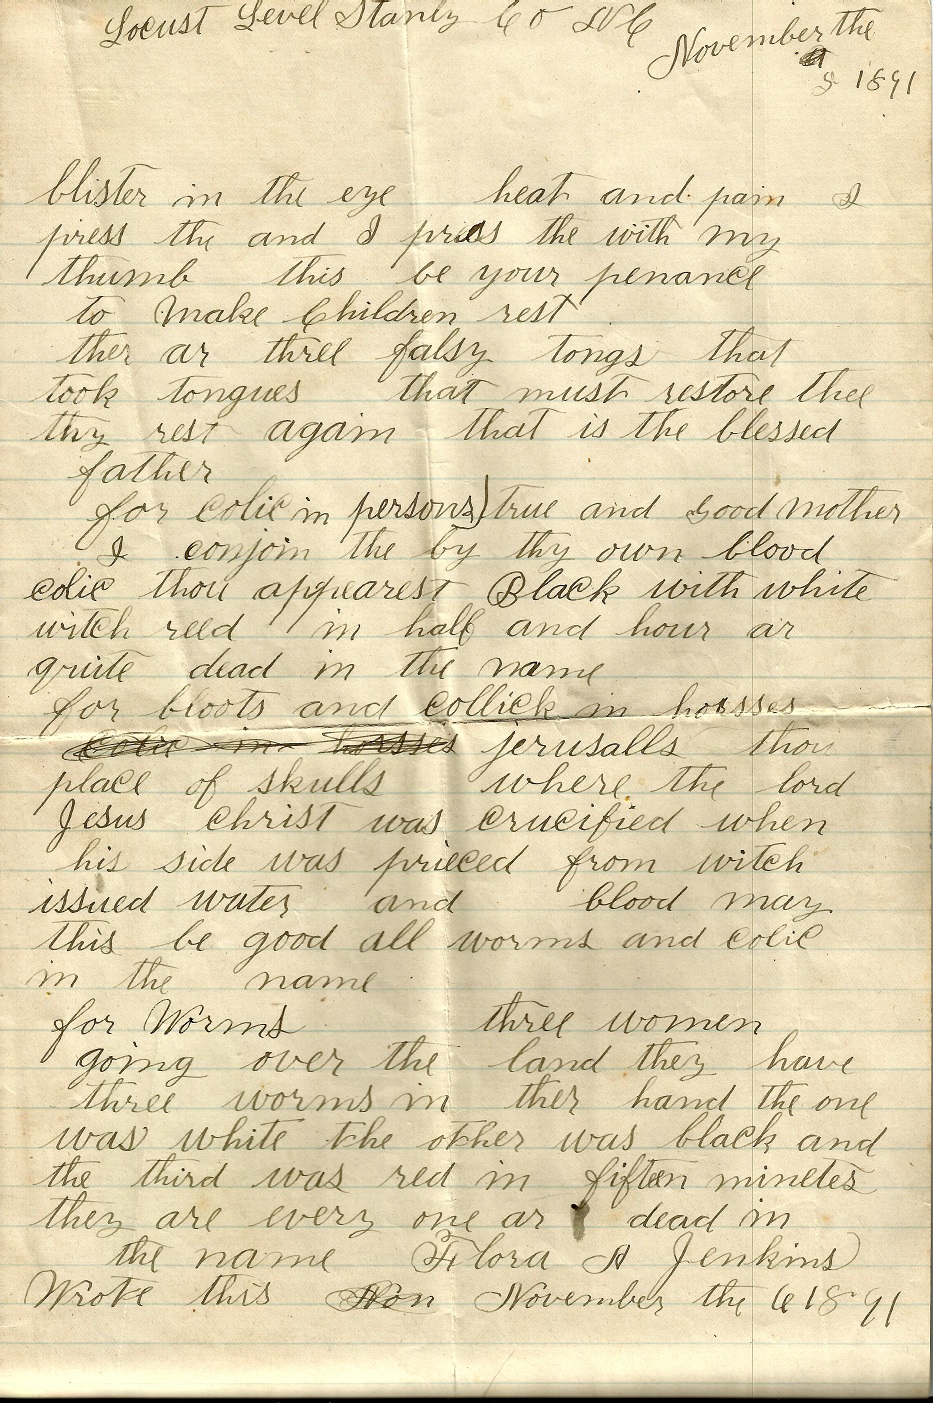 Locust Level Stanly Co N C
November the
8 1891
blister in the eye heat and pain I
press the and I press the with my
thumb this be your penance
to Make Children rest
ther ar three falsy tongs that
took tongues that must restore thee
thy rest again that is the blessed
father
for colic in persons) true and Good Mother
I conjoin the by thy own blood
colic thou appearest Black with white
witch reed in half and hour ar
quite dead in the name
for broots and collick in horsses
colic in horsses jerusalls thou
place of skulls where the lord
Jesus christ was crucified when
his side was prieced from witch
issued water and blood may
this be good all worms and colic
in the name
for Worms three women
going over the land they have
three worms in ther hand the one
was white the other was black and
the third was red in fiften minetes
they are every one ar dead in
the name Flora A Jenkins
Wrote this Non November the 6 1891